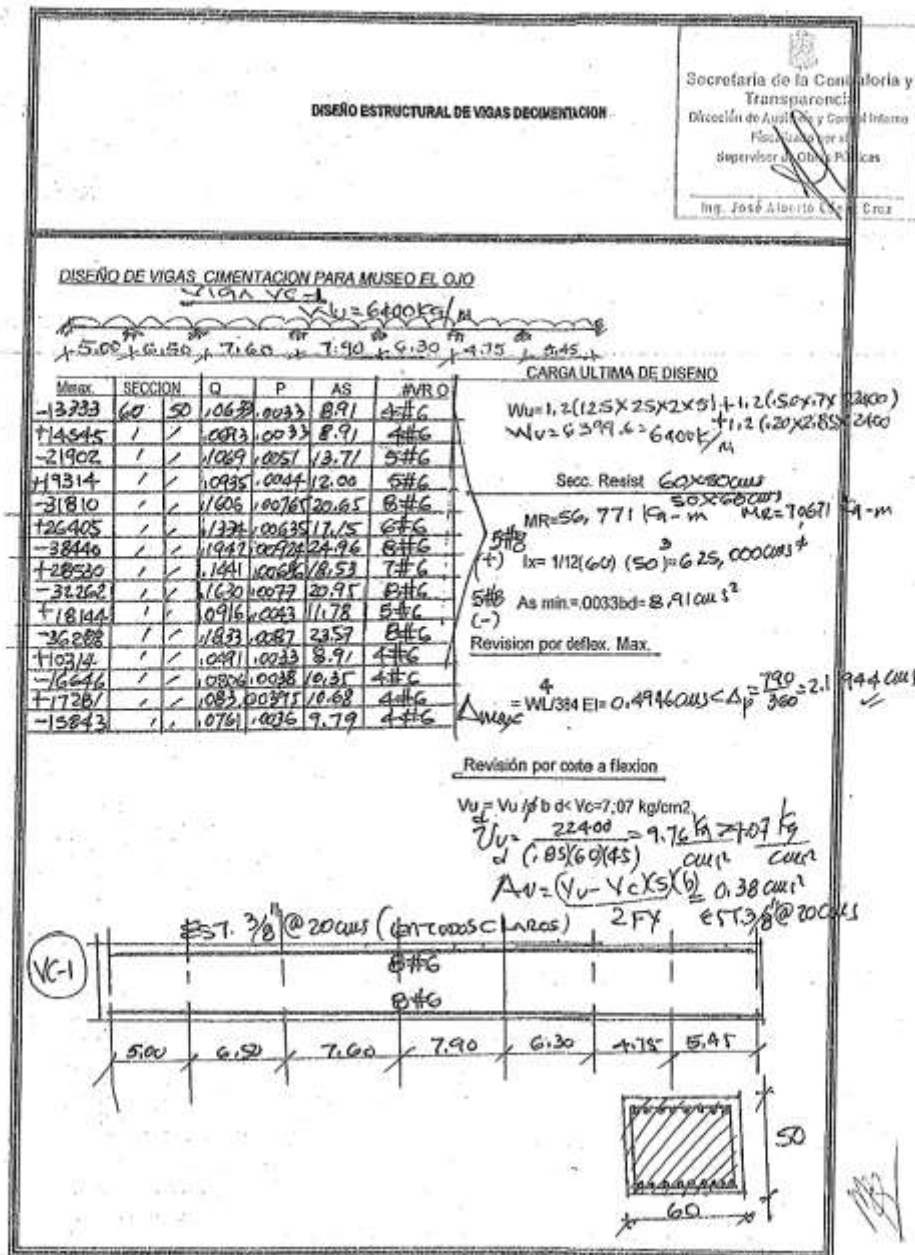 Secretaría de la Contraloría y
Transparencia
Dirección de Auditoría y Control Interno
Fiscalizado por el
Supervisor de Obras Públicas
Ing. José Alberto Cruz
DISEÑO ESTRUCTURAL DE VIGAS DECIMENTACION
DISEÑO DE VIGAS CIMENTACION PARA MUSEO EL OJO
VIGA VC-1
Wu=6400Kg/M
5.00 6.50 7.60 7.90 6.30 4.75 5.45
Mmax. SECCION Q P AS #VR O
-13333 60 50 .0633 .0033 8.91 4#6
+14545 / / .0093 .0033 8.91 4#6
-21902 / / .1069 .0051 13.71 5#6
+19314 / / .0935 .0044 12.00 5#6
-31810 / / .1606 .00765 20.65 8#6
+26405 / / .1334 .00635 17.15 6#6
-38440 / / .1942 .00924 24.96 8#6
+28530 / / .1441 .00686 18.53 7#6
-32262 / / .1630 .0077 20.95 8#6
+18144 / / .0916 .0043 11.78 5#6
-36288 / / .1833 .0087 23.57 8#6
+10314 / / .0491 .0033 8.91 4#6
-16646 / / .0806 .0038 10.35 4#6
+17281 / / .083 .00395 10.68 4#6
-15843 / / .0761 .0036 9.79 4#6
5#8
(+)
5#8
(-)
CARGA ULTIMA DE DISEÑO
Wu=1.2(125X25X2X5)+1.2(.50x.7X2400)
+1.2(.20X2.85X2400
Wu=6399.6=6400K/M
Secc. Resist 60X50cms
50X60cms
MR=56,771 Kg-m MR=70671 Kg-m
Ix= 1/12(60) (50)3=625,000cms4
As min.=.0033bd=8.91cms2
Revision por deflex. Max.
Δmax = WL4/384 EI= 0.4946cms<Δp=790/360=2.1944cms
Revisión por corte a flexion
Vu = Vu /ø b d< Vc=7,07 kg/cm2
d
Vu= 22400 = 9.76 Kg >7.07 Kg
d (.85)(60)(45) cm2 cm2
Av=(Vu-Vc)(S)(b)= 0.38cm2
2FY EST.3/8"@20cms
EST. 3/8"@20cms (EN TODOS CLAROS)
VC-1
8#6
8#6
5.00 6.50 7.60 7.90 6.30 4.75 5.45
50
60